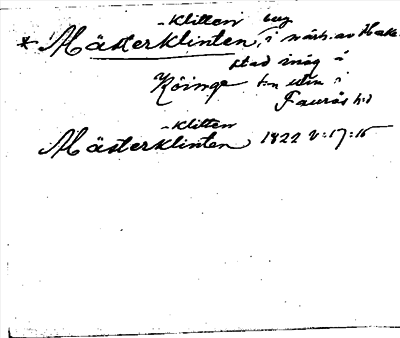 -klitten
* Mästerklinten, i närh. av Hake-
stad inäg å
Köinge
Faurås hd
-klitten
Mästerklinten 1822 V:17:15